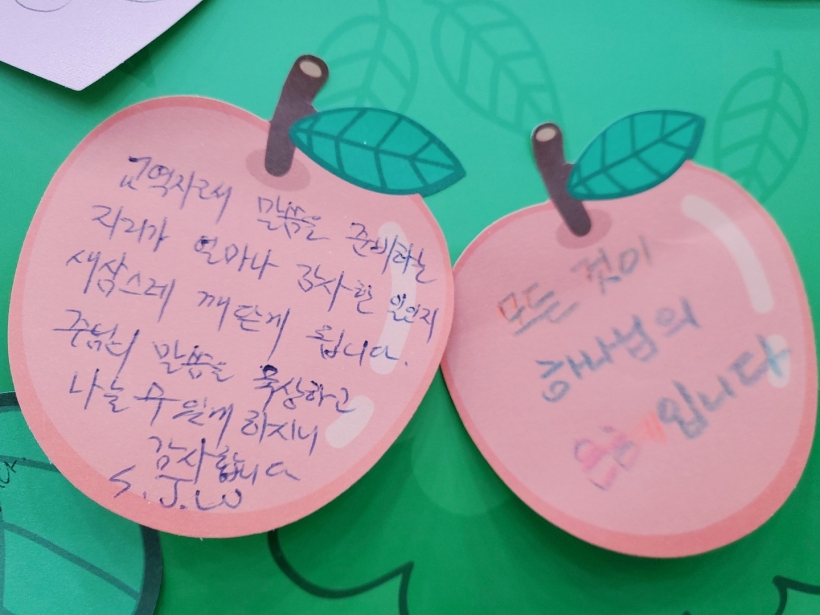 구역자래서 말씀을 준비하는
자리가 얼마나 감사한 일인지
새삼스레 깨닫게 됩니다.
주님의 말씀을 묵상하고
나눌 수 있게 하시니
감사합니다
S.J.W
모든 것이
하나님의
은혜입니다